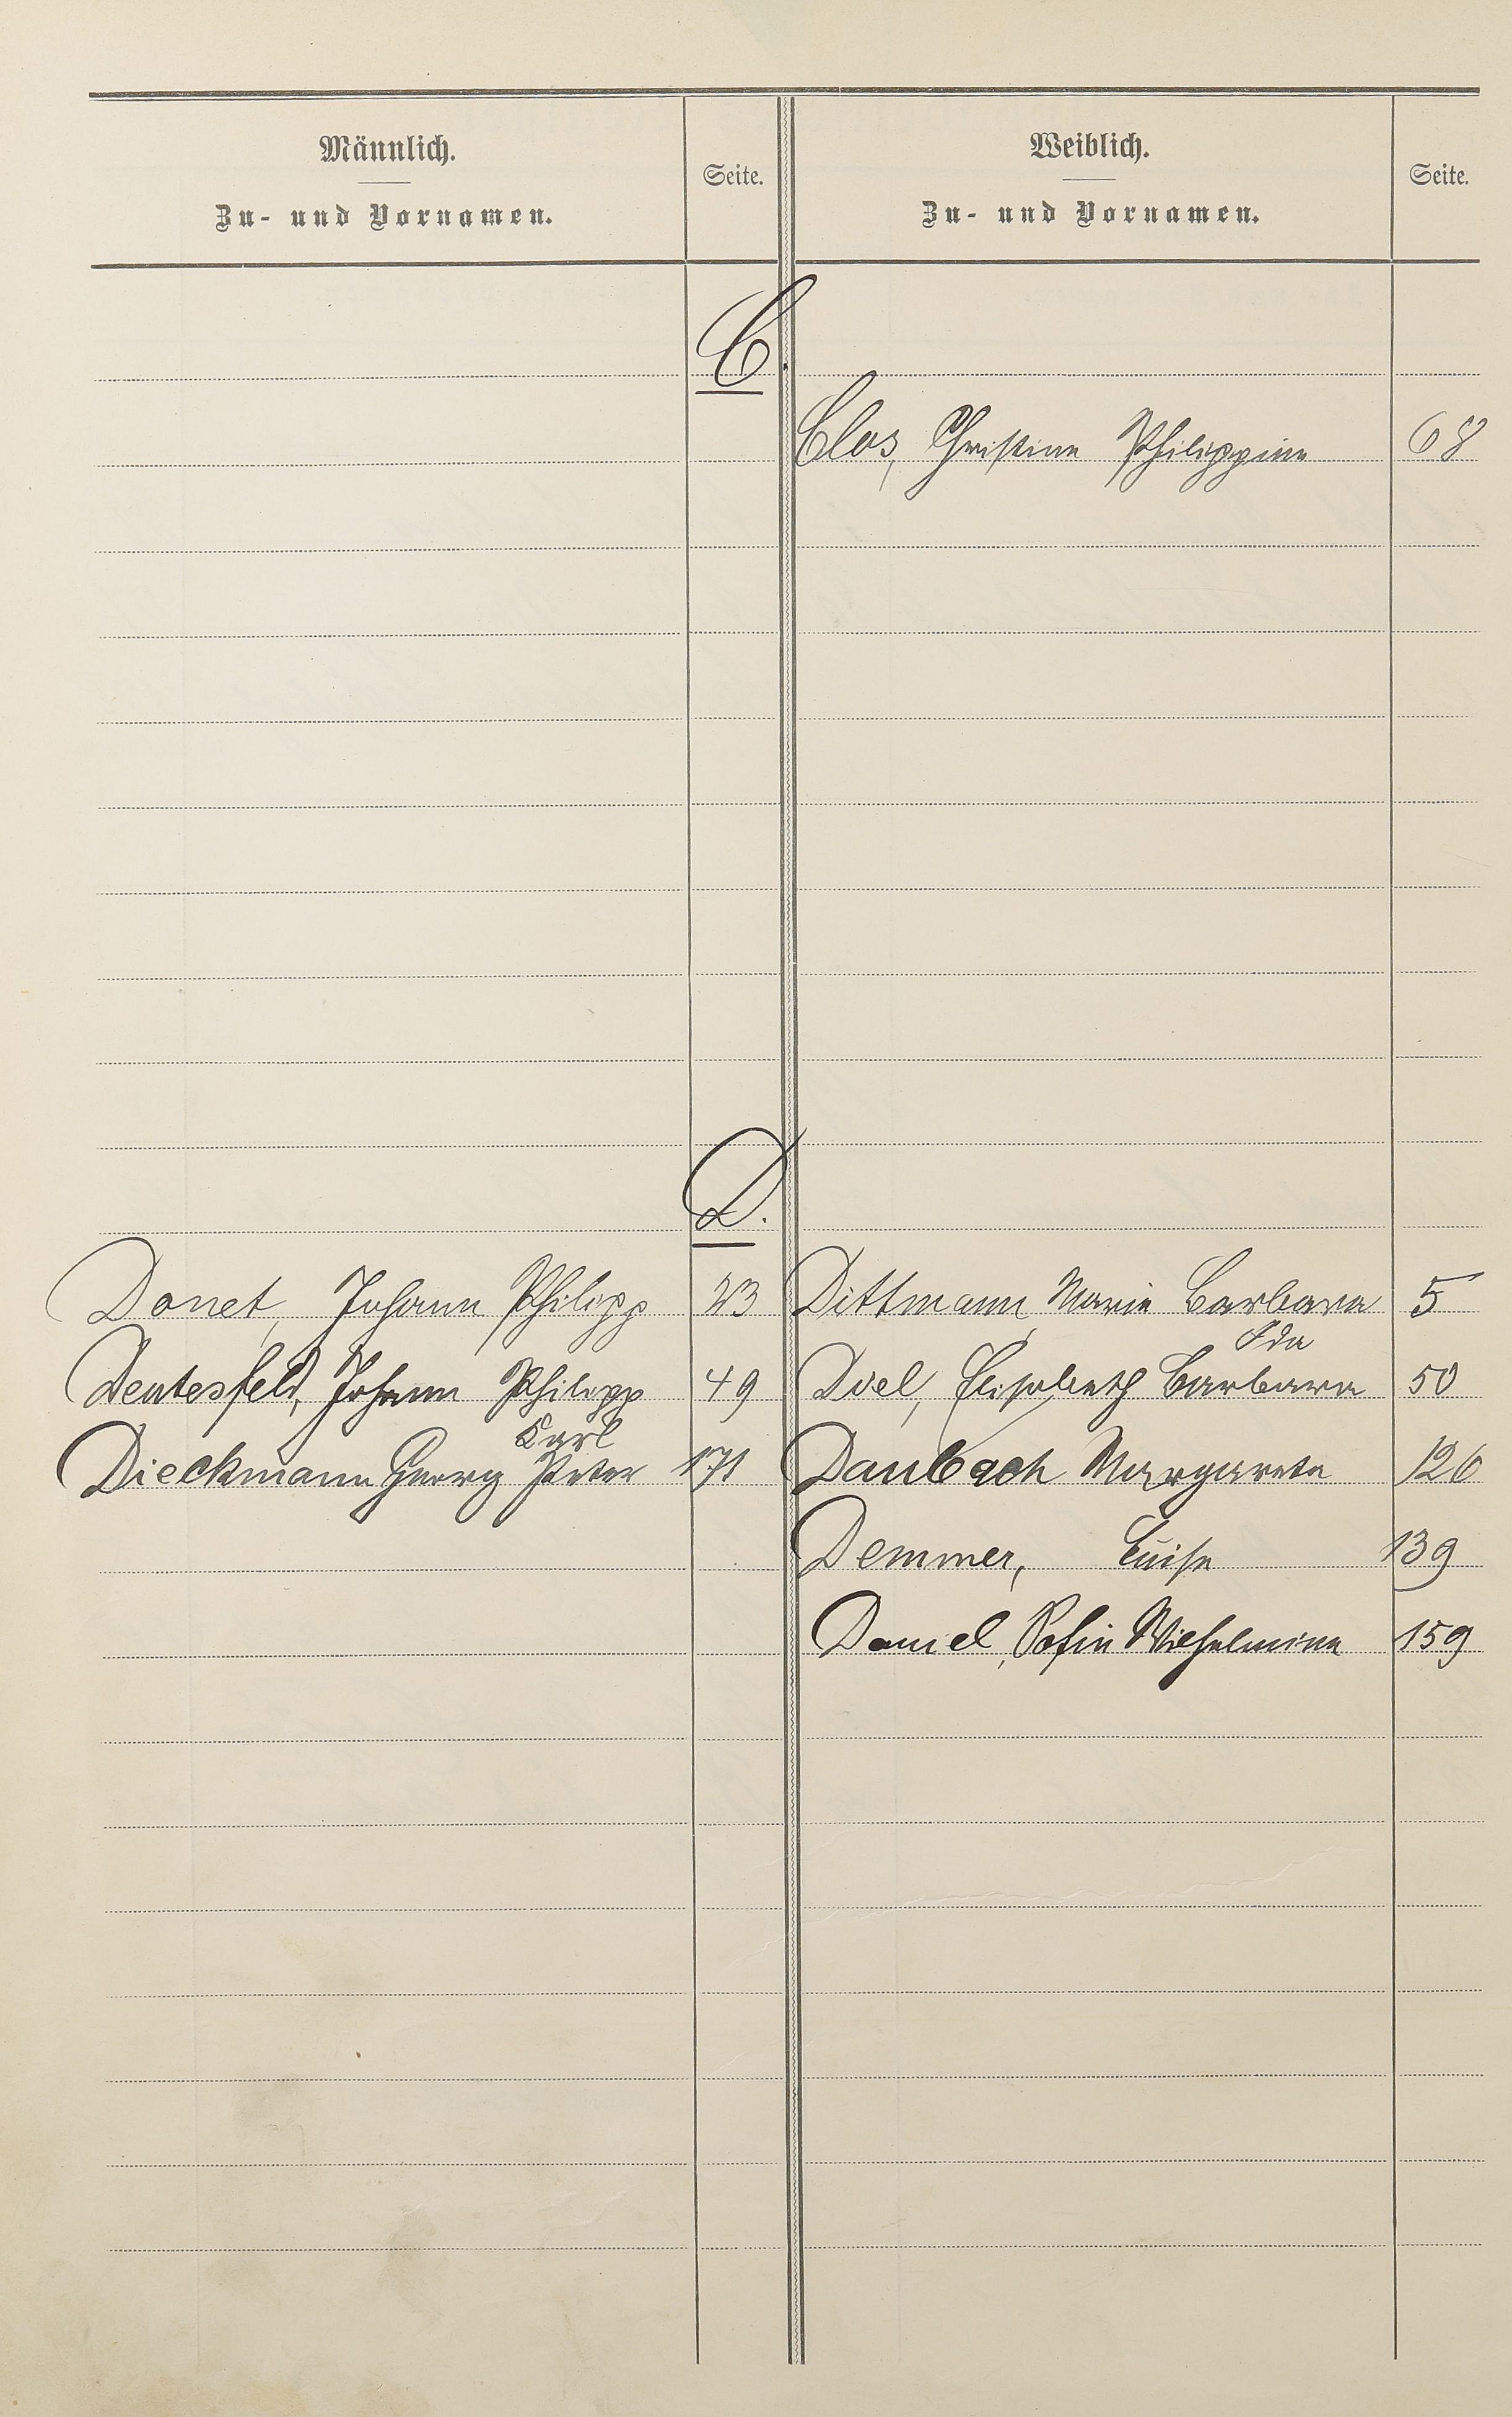 Männlich.
Zu- und Vornamen.
Seite.
Weiblich.
Zu- und Vornamen.
Seite.
C.
Clos, Christine Philippine 68
D.
Donet, Johann Philipp 23 Dittmann, Marie Barbara 5
Ida
Deutesfeld, Johann Philipp 49 Diel, Elisabeth Barbara 50
Karl
Dieckmann Georg Peter 171 Daubach Margareta 126
Demmer, Luise 139
Daniel, Sofie Wilhelmine 159